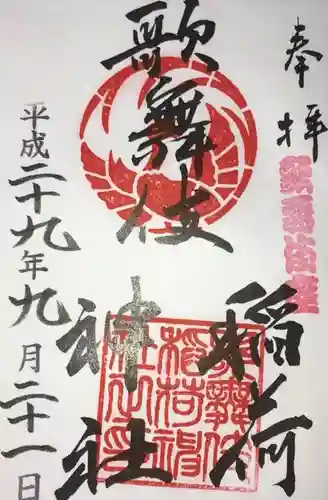 奉拝
歌舞伎座
歌舞伎
稲荷
神社
平成二十九年九月二十一日